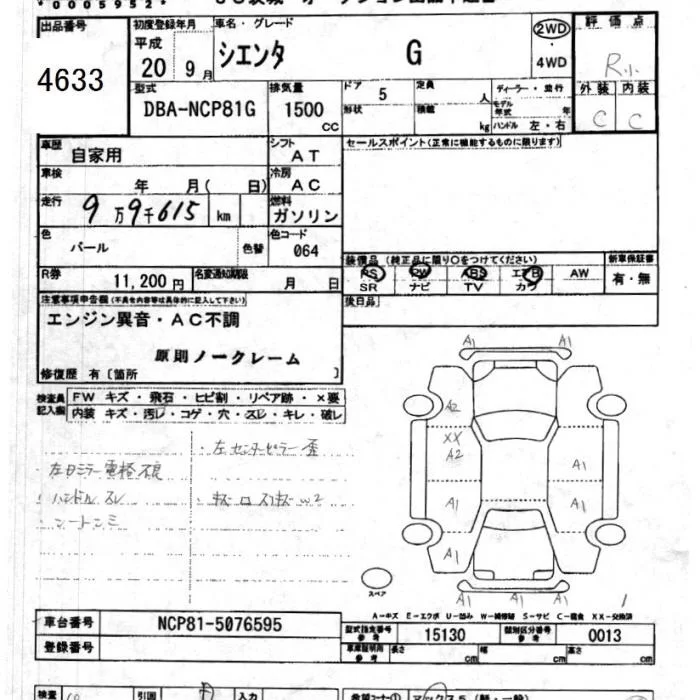 *0005952*
出品番号
4633
初度登録年月
平成
20 9月
車名・グレード
シエンタ G
2WD
・
4WD
評価点
R小
外装 内装
C C
型式
DBA-NCP81G
排気量
1500
CC
ドア 5
形状
定員
人
積載
kg
ディーラー・並行
モデル
年式 年
ハンドル 左・右
車歴
自家用
シフト
AT
セールスポイント(正常に機能するものに限ります)
車検
年 月( 日)
冷房
AC
走行
9万9千615 km
燃料
ガソリン
色
パール
色替
色コード
064
装備品(純正品に限り○をつけてください)
新車保証書
PS PW ABS エアB AW
SR ナビ TV カワ
有・無
R券
11,200円
名変通知期限
月 日
後日品
注意事項申告欄(不具合内容等は具体的に記入して下さい)
エンジン異音・AC不調
原則ノークレーム
修復歴 有〔箇所 〕
検査員
記入欄
FW キズ・飛石・ヒビ割・リペア跡・×要
内装 キズ・汚レ・コゲ・穴・スレ・キレ・破レ
・左センターピラー歪
・左Dミラー電格不良
・ハンドルスレ
・シートシミ
A1 A1
A2
XX
A2
A1
A1 A1
A1 A1
A1 A1
スペア
A-キズ E-エクボ U-凹み W-補修跡 S-サビ C-腐食 XX-交換済
車台番号
NCP81-5076595
登録番号
型式指定番号
参考
15130
類別区分番号
参考
0013
車庫証明用
参考
長さ cm
幅 cm
高さ cm
検査
引固
入力
希望コーナー①